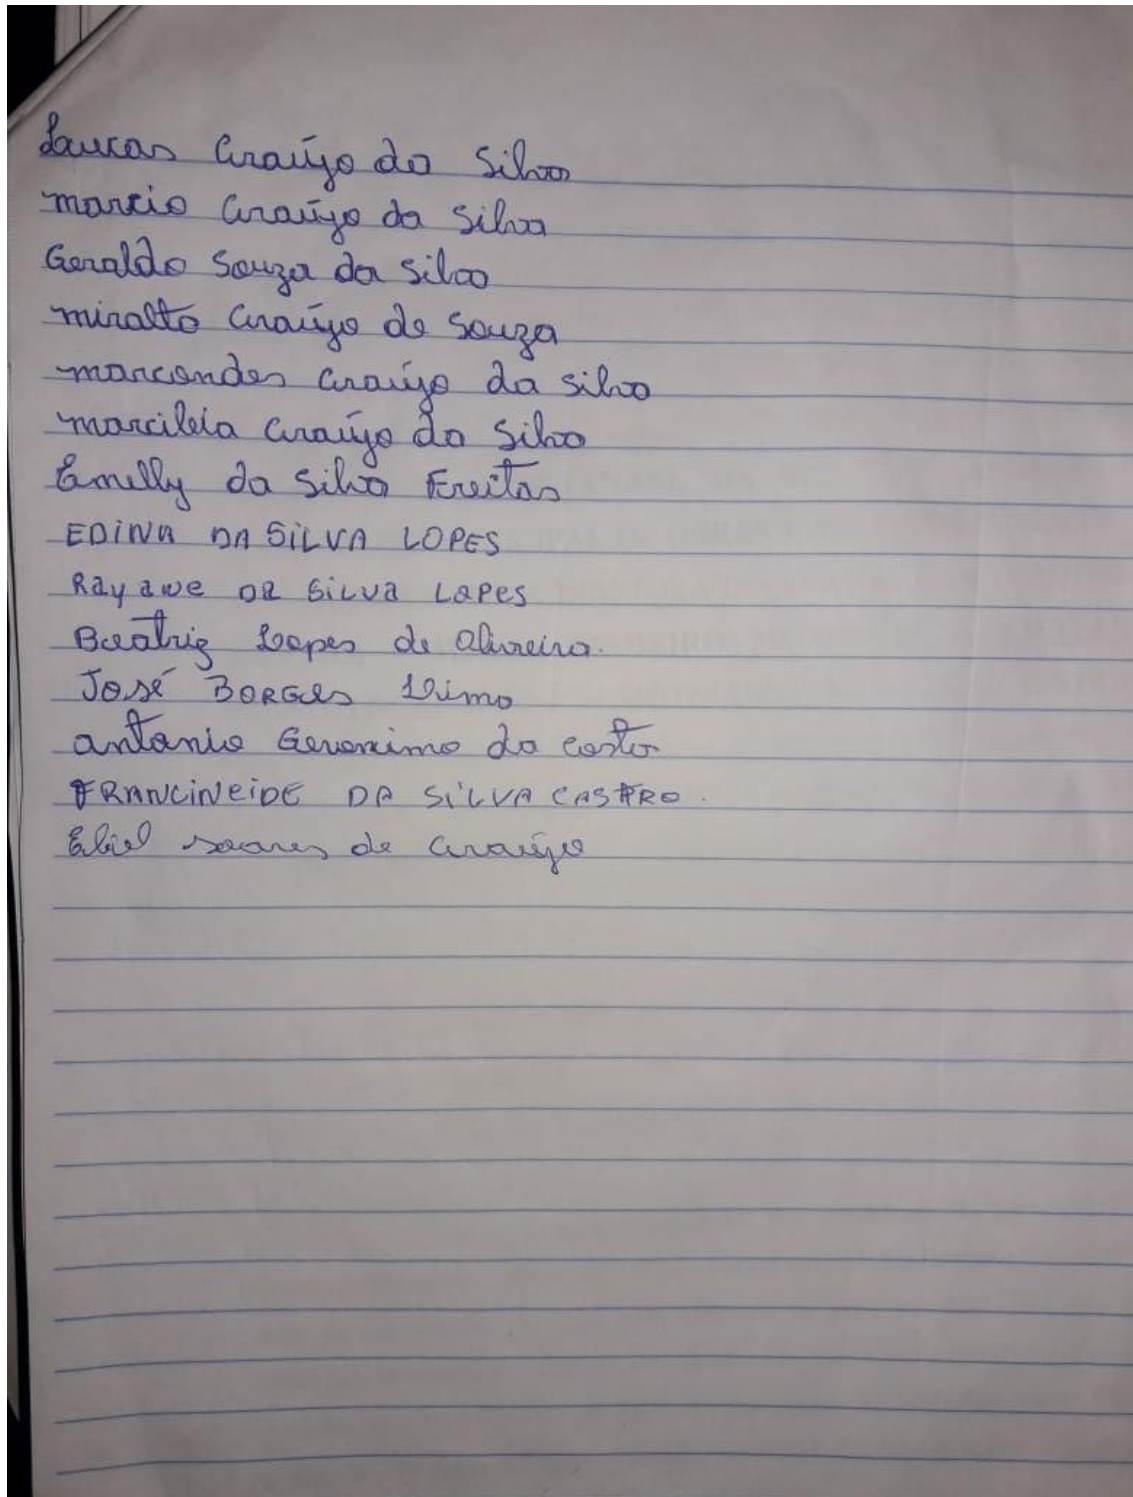 Laucas Araújo da Silva
marcio Araújo da Silva
Geraldo Souza da Silva
miralto Araújo de Souza
marcondes Araújo da Silva
marciléia Araújo da Silva
Emelly da Silva Freitas
EDINA DA SILVA LOPES
Rayane da Silva Lopes
Beatriz Lopes de Oliveira.
José BORGES
antonio Geronimo da costa
FRANCINEIDE DA SILVA CASTRO.
Eliel soares de Araújo